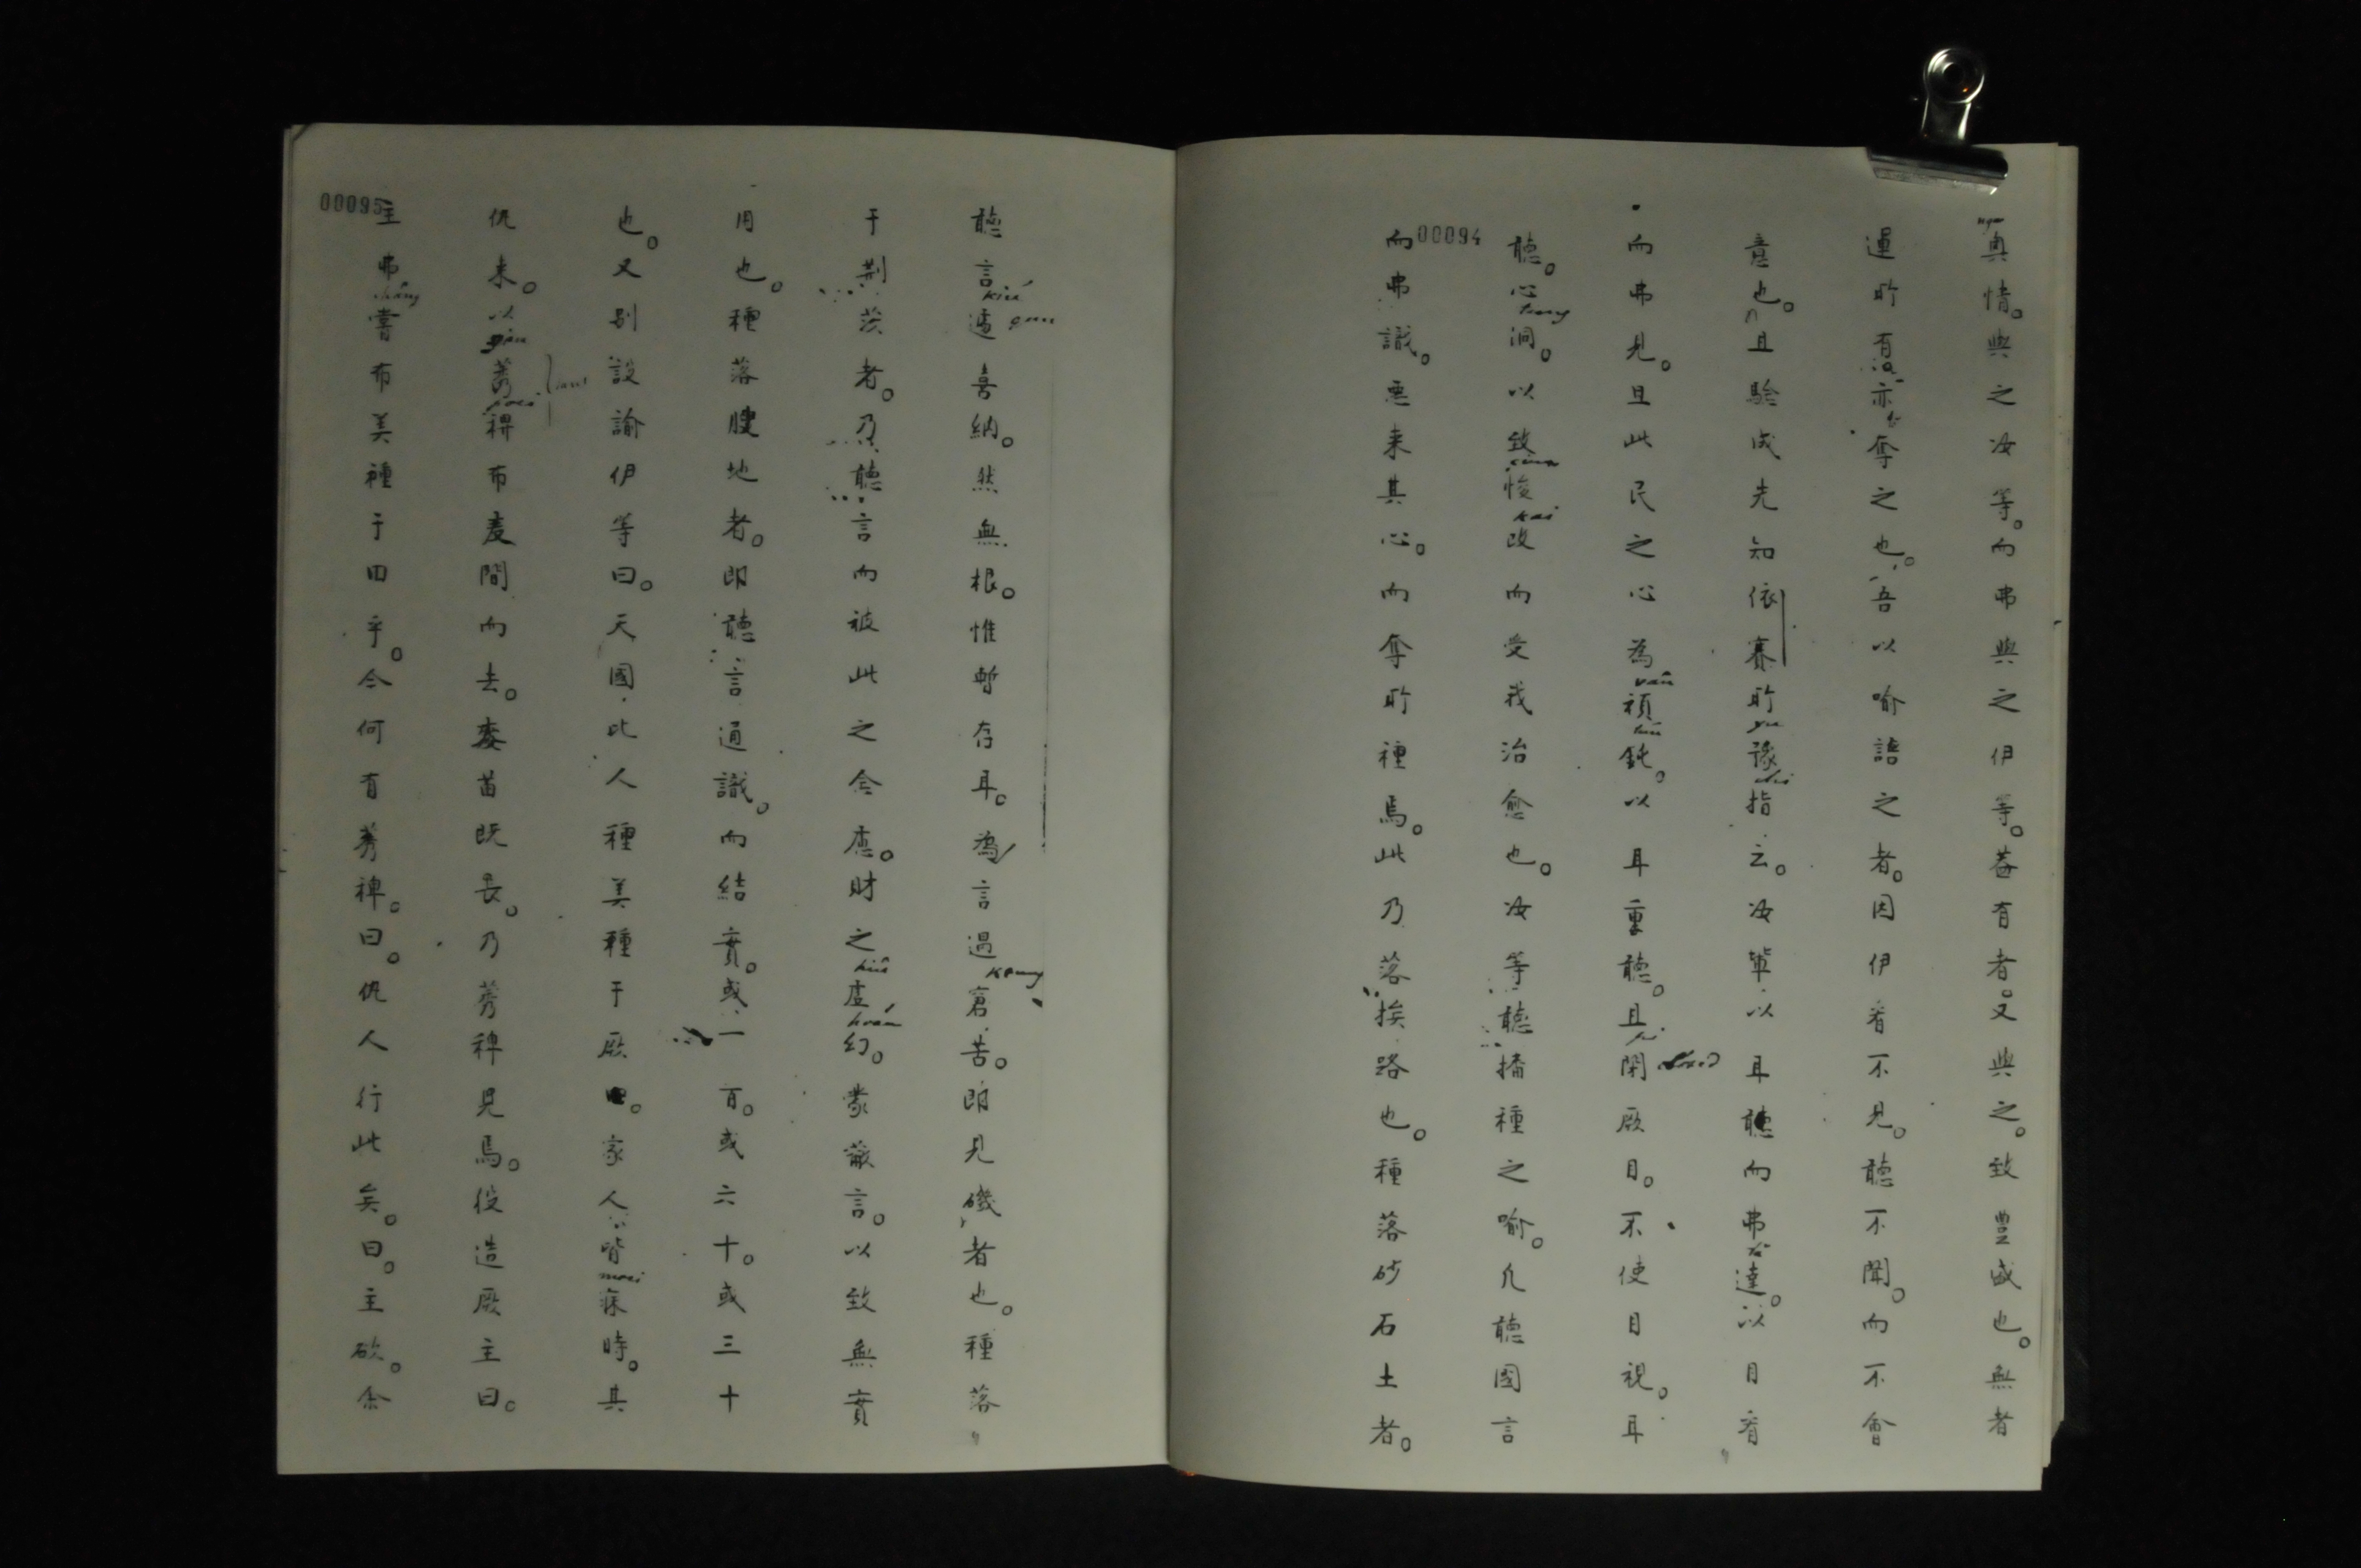 奥情。與之汝等。而弗與之伊等。蓋有者。又與之。致豊盛也。無者
運所有亦奪之也。吾以喻語之者。因伊看不見。聽不聞。而不會
意也。且驗成先知依賽所豫指云。汝輩以耳聽而弗達。以目看
而弗見。且此民之心為頑鈍。以耳重聽。且閉厥目。不使目視。耳
聽。心洞。以致悛改而受我治愈也。汝等聽播種之喻。凡聽國言
而弗識。惡來其心。而奪所種焉。此乃落挨路也。種落砂石土者。
00094
聽言遽喜納。然無根。惟暫存耳。為言過窘苦。即見磯者也。種落
于荆茨者。乃聽言而被此之念慮。財之虛幻。蒙蔽言。以致無實
用也。種落腴地者。即聽言通識。而結實。或一百。或六十。或三十
也。又別設諭伊等曰。天國此人種美種于厥田。家人皆寐時。其
仇来。以莠稗布麦間而去。麥苗既長。乃莠稗見焉。役造厥主曰。
主弗嘗布美種于田乎。今何有莠稗。曰。仇人行此矣。曰。主欲。余
00095